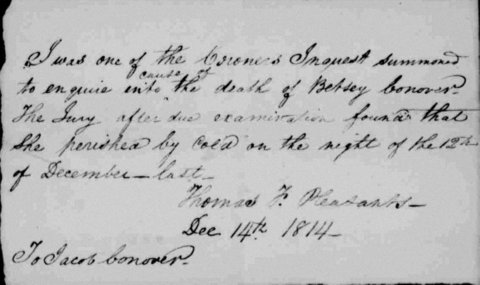 I was one of the Coroners Inquest summoned
to enquire into the cause of death of Betsey Conover
The Jury after due examination found that
She perished by Cold on the night of the 12th
of December last
Thomas F. Pleasants
Dec 14th 1814
To Jacob Conover